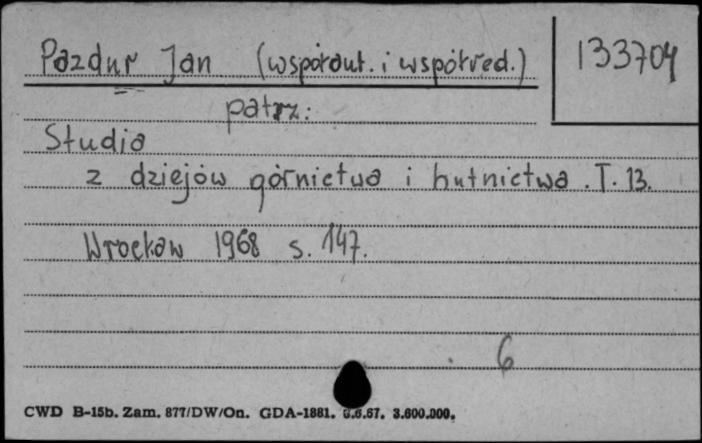 Pazdur Jan (współaut. i współred.)
133704
patrz:
Studia
z dziejów górnictwa i hutnictwa. T. 13.
Wrocław 1968 s. 147.
6
CWD B-15b. Zam. 877/DW/On. GDA-1881. 6.6.67. 3.600.000.